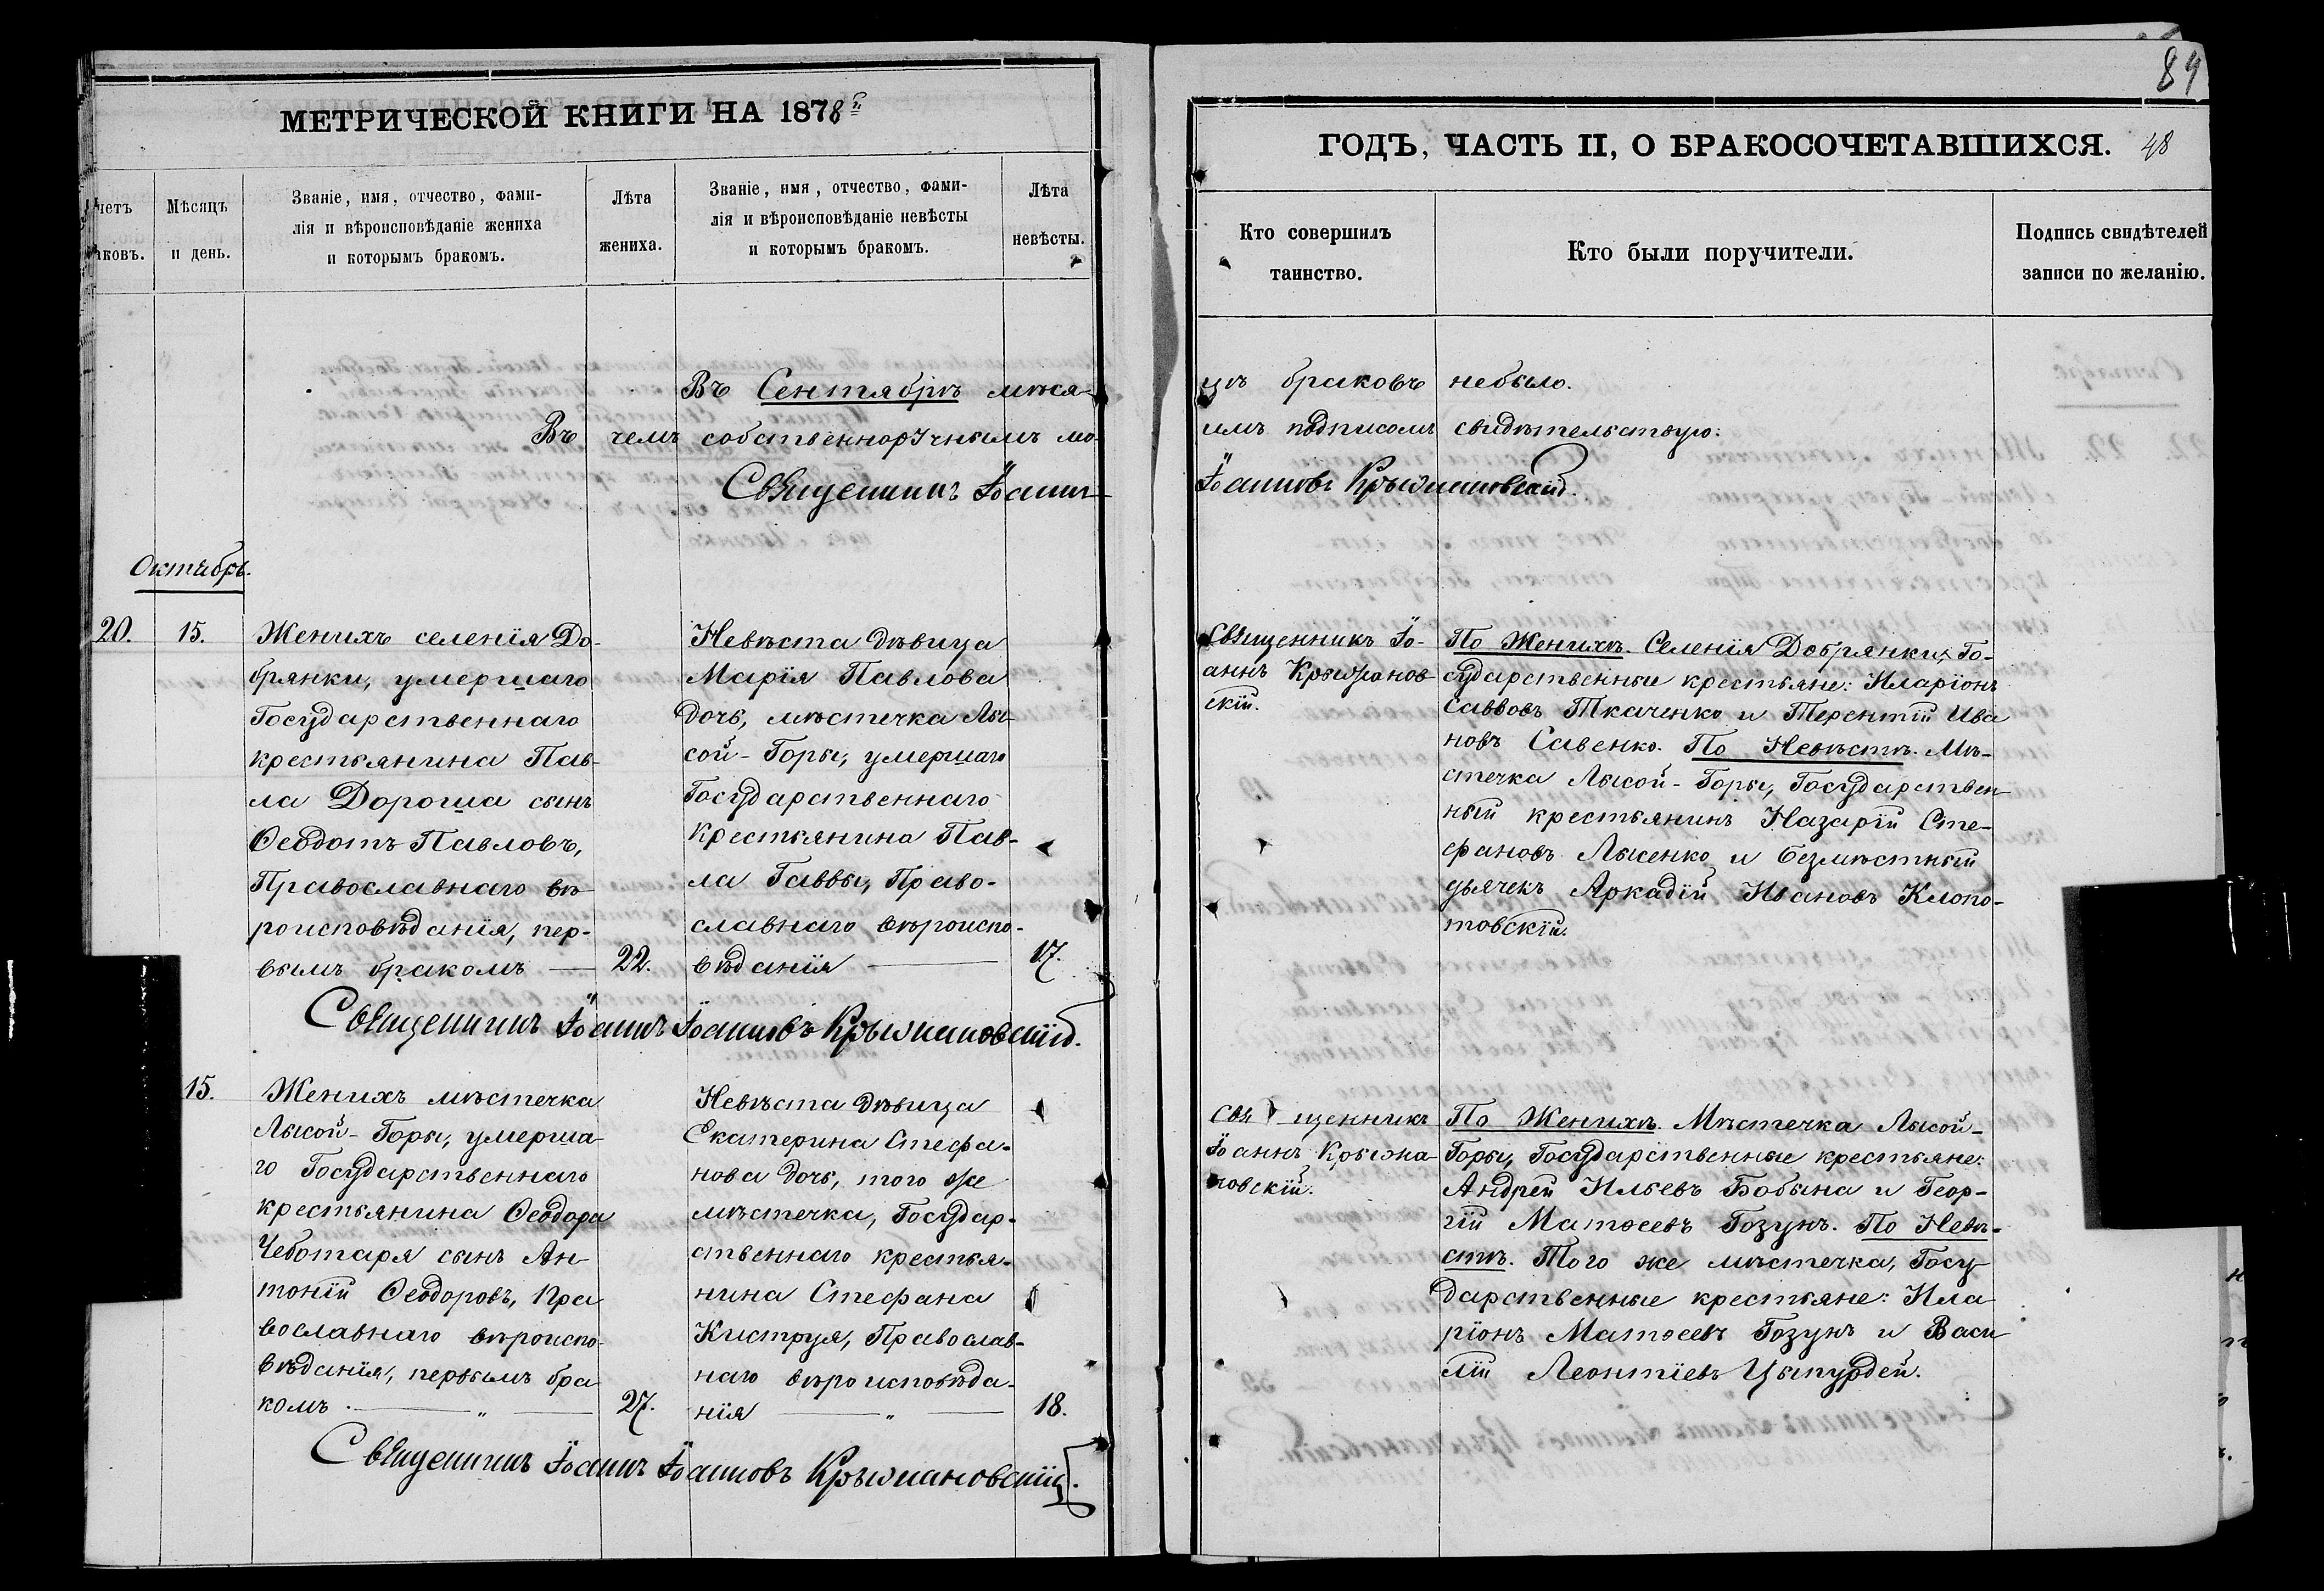 89
МЕТРИЧЕСКОЙ КНИГИ НА 1878й
ГОДЪ, ЧАСТЬ II, О БРАКОСОЧЕТАВШИХСЯ. 48
четъ
аковъ.
Мѣсяцъ
и день.
Званіе, имя, отчество, фами-
лія и вѣроисповѣданіе жениха
и которымъ бракомъ.
Лѣта
жениха.
Званіе, имя, отчество, фами-
лія и вѣроисповѣданіе невѣсты
и которымъ бракомъ.
Лѣта
невѣсты.
Кто совершилъ
таинство.
Кто были поручители.
Подпись свидѣтелей
записи по желанію.
Въ Сентябрѣ мѣся-
цѣ браковъ небыло.
Въ чемъ собственноручнымъ мо-
имъ подписомъ свидѣтельствую:
Священникъ Іоаннъ
Іоанновъ Крыжановскій.
Октябрь.
20. 15.
Женихъ селенія До-
брянки, умершаго
Государственнаго
крестьянина Пав-
ла Дороша сынъ
Ѳеодотъ Павловъ,
Православнаго вѣ-
роисповѣданія, пер-
вымъ бракомъ — 22.
Невѣста дѣвица
Марія Павлова
дочь, мѣстечка Лы-
сой-Горы, умершаго
Государственнаго
крестьянина Пав-
ла Гаввы, Право-
славнаго вѣроиспо-
вѣданія — 17.
Священникъ Іо-
аннъ Крыжанов-
скій.
По Женихѣ. Селенія Добрянки, Го-
сударственные крестьяне: Иларіонъ
Саввовъ Ткаченко и Терентій Ива
новъ Савенко. По Невѣстѣ. Мѣ-
стечка Лысой-Горы, Государствен-
ный крестьянинъ Назарій Сте-
фановъ Лысенко и безмѣстный
дьячекъ Аркадій Ивановъ Клопо-
товскій.
Священникъ Іоаннъ Іоанновъ Крыжановскій.
15.
Женихъ мѣстечка
Лысой-Горы, умерша-
го Государственнаго
крестьянина Ѳеодора
Чеботаря сынъ Ан-
тоній Ѳеодоровъ, Пра
вославнаго вѣроиспо-
вѣданія, первымъ бра
комъ. — „ — 27.
Невѣста дѣвица
Екатерина Стефа-
нова дочь, того же
мѣстечка, Государ-
ственнаго крестья-
нина Стефана
Киструя, Православ-
наго вѣроисповѣда-
нія — „ — 18.
Священникъ
Іоаннъ Крыжа-
новскій.
По Женихѣ. Мѣстечка Лысой-
Горы, Государственные крестьяне:
Андрей Ильевъ Бобына и Геор-
гій Матѳеевъ Гозунъ. По Невѣ-
стѣ. Того же мѣстечка, Госу-
дарственные крестьяне: Ила
ріонъ Матѳеевъ Гозунъ и Васи
лій Леонтіевъ Цыпурдей.
Священникъ Іоаннъ Іоанновъ Крыжановскій.